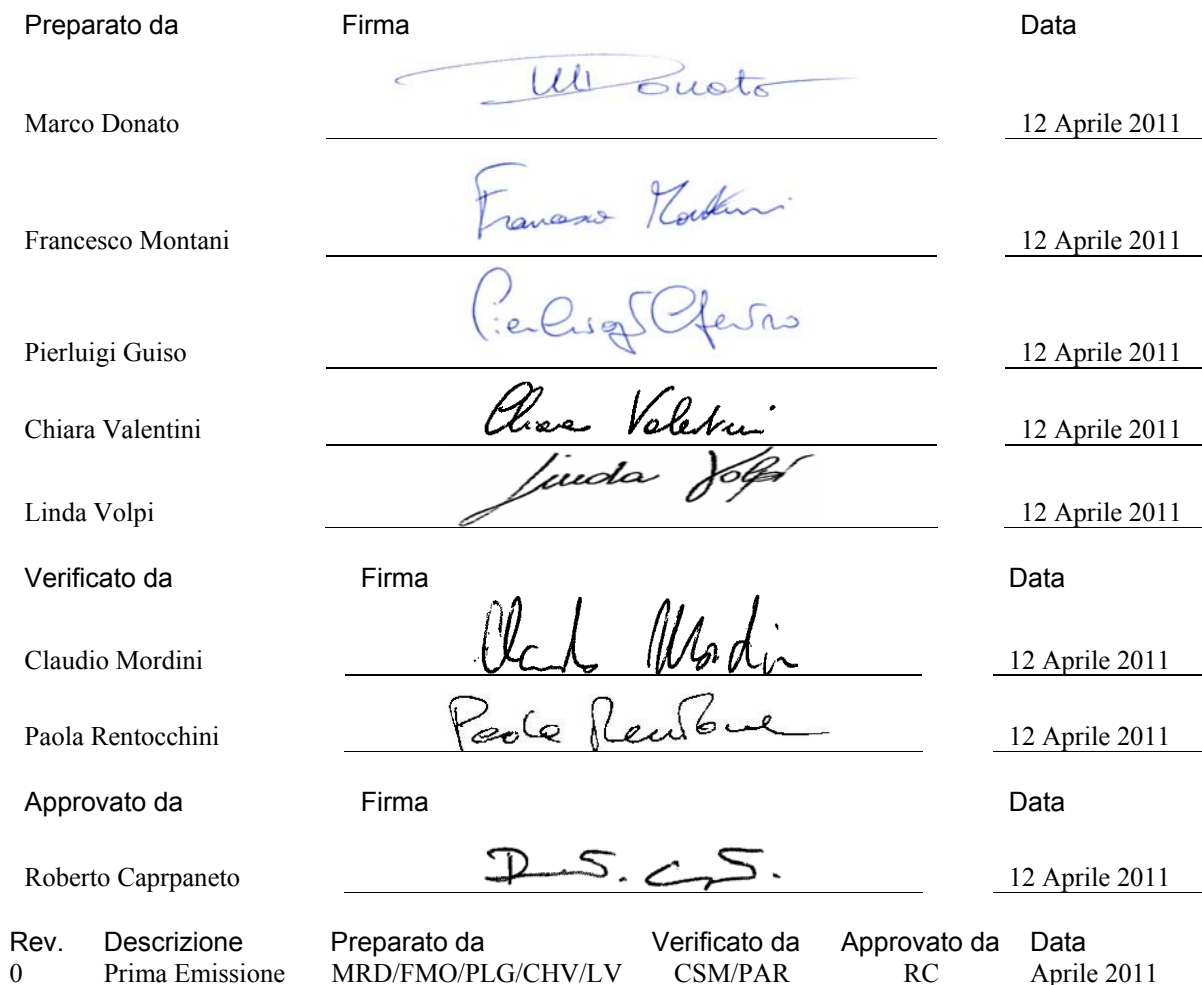 Preparato da Firma Data
MDonato
Marco Donato 12 Aprile 2011
Francesco Montani
Francesco Montani 12 Aprile 2011
Pierluigi Guiso
Pierluigi Guiso 12 Aprile 2011
Chiara Valentini
Chiara Valentini 12 Aprile 2011
Linda Volpi
Linda Volpi 12 Aprile 2011
Verificato da Firma Data
Claudio Mordini
Claudio Mordini 12 Aprile 2011
Paola
Paola Rentocchini 12 Aprile 2011
Approvato da Firma Data
Roberto Caprpaneto 12 Aprile 2011
Rev. Descrizione Preparato da Verificato da Approvato da Data
0 Prima Emissione MRD/FMO/PLG/CHV/LV CSM/PAR RC Aprile 2011